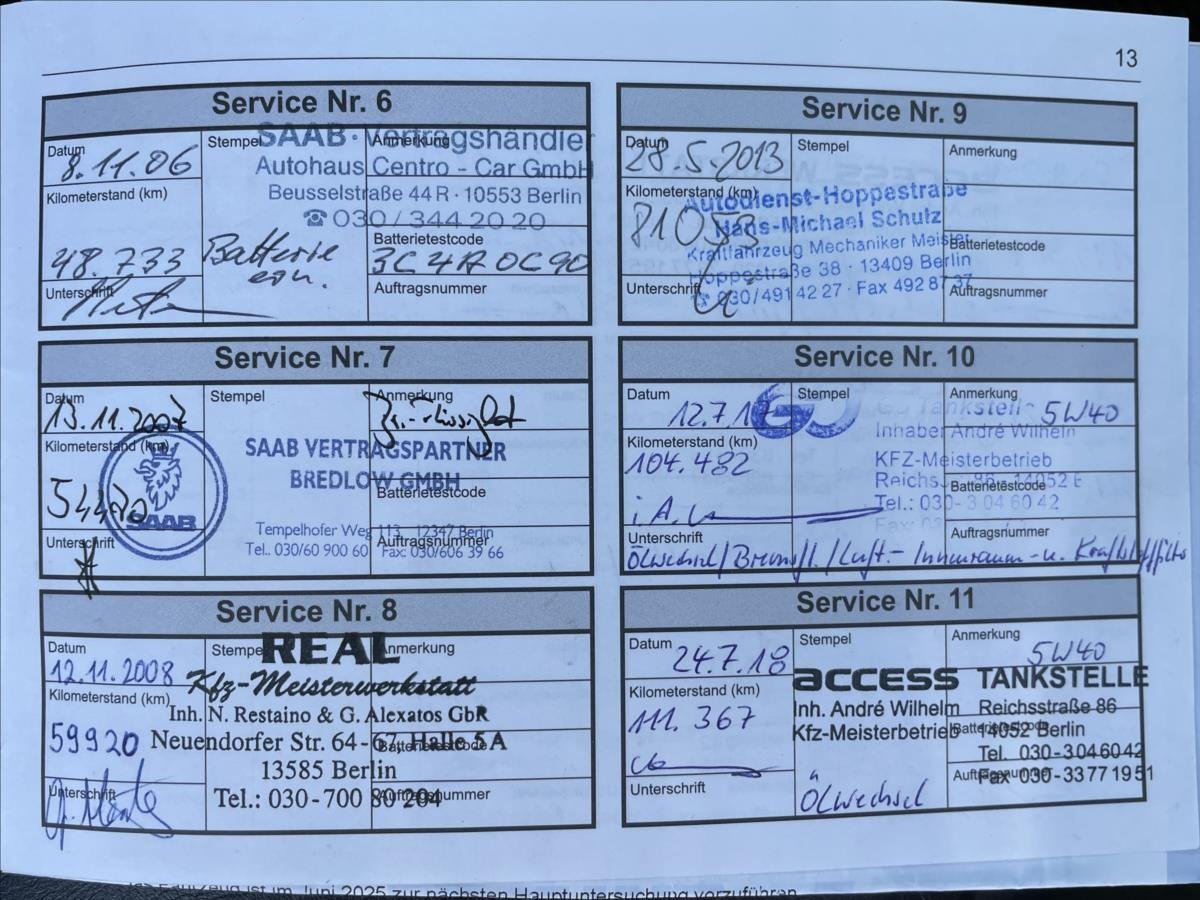 13
Service Nr. 6
Datum
8.11.06
Kilometerstand (km)
48.733
Unterschrift
Stempel
SAAB · Vertragshändler
Autohaus Centro - Car GmbH
Beusselstraße 44 R · 10553 Berlin
☎ 030 / 344 20 20
Batterie
ern.
Anmerkung
Batterietestcode
3C4A0C90
Auftragsnummer
Service Nr. 7
Datum
13.11.2007
Kilometerstand (km)
SAAB
Unterschrift
Stempel
SAAB VERTRAGSPARTNER
BREDLOW GMBH
Tempelhofer Weg 113 12347 Berlin
Tel. 030/60 900 60 Fax: 030/606 39 66
Anmerkung
Batterietestcode
Auftragsnummer
Service Nr. 8
Datum
12.11.2008
Kilometerstand (km)
59920
Unterschrift
Stempel
REAL
Kfz-Meisterwerkstatt
Inh. N. Restaino & G. Alexatos GbR
Neuendorfer Str. 64-67, Halle 5 A
13585 Berlin
Tel.: 030-700 80 204
Anmerkung
Batterietestcode
Auftragsnummer
Service Nr. 9
Datum
28.5.2013
Kilometerstand (km)
81053
Unterschrift
Stempel
Autodienst-Hoppestraße
Hans-Michael Schulz
Kraftfahrzeug Mechaniker Meister
Hoppestraße 38 · 13409 Berlin
☎ 030/491 42 27 · Fax 492 87 37
Anmerkung
Batterietestcode
Auftragsnummer
Service Nr. 10
Datum
12.7.17
Kilometerstand (km)
104.482
i.A.
Unterschrift
Stempel
GO Tankstelle
Inhaber André Wilhelm
KFZ-Meisterbetrieb
14052
Tel.: 030- 3 04 60 42
Anmerkung
5W40
Batterietestcode
Auftragsnummer
Ölwechsel/Bremsfl./Luft- Innenraum- u. Kraftstofffilter
Service Nr. 11
Datum
24.7.18
Kilometerstand (km)
111.367
Unterschrift
Stempel
access TANKSTELLE
Inh. André Wilhelm Reichsstraße 86
Kfz-Meisterbetrieb 14052 Berlin
Tel. 030-304 60 42
Fax 030-33 77 19 51
Ölwechsel
Anmerkung
5W40
Batterietestcode
Auftragsnummer
Fahrzeug ist im Juni 2025 zur nächsten Hauptuntersuchung vorzuführen